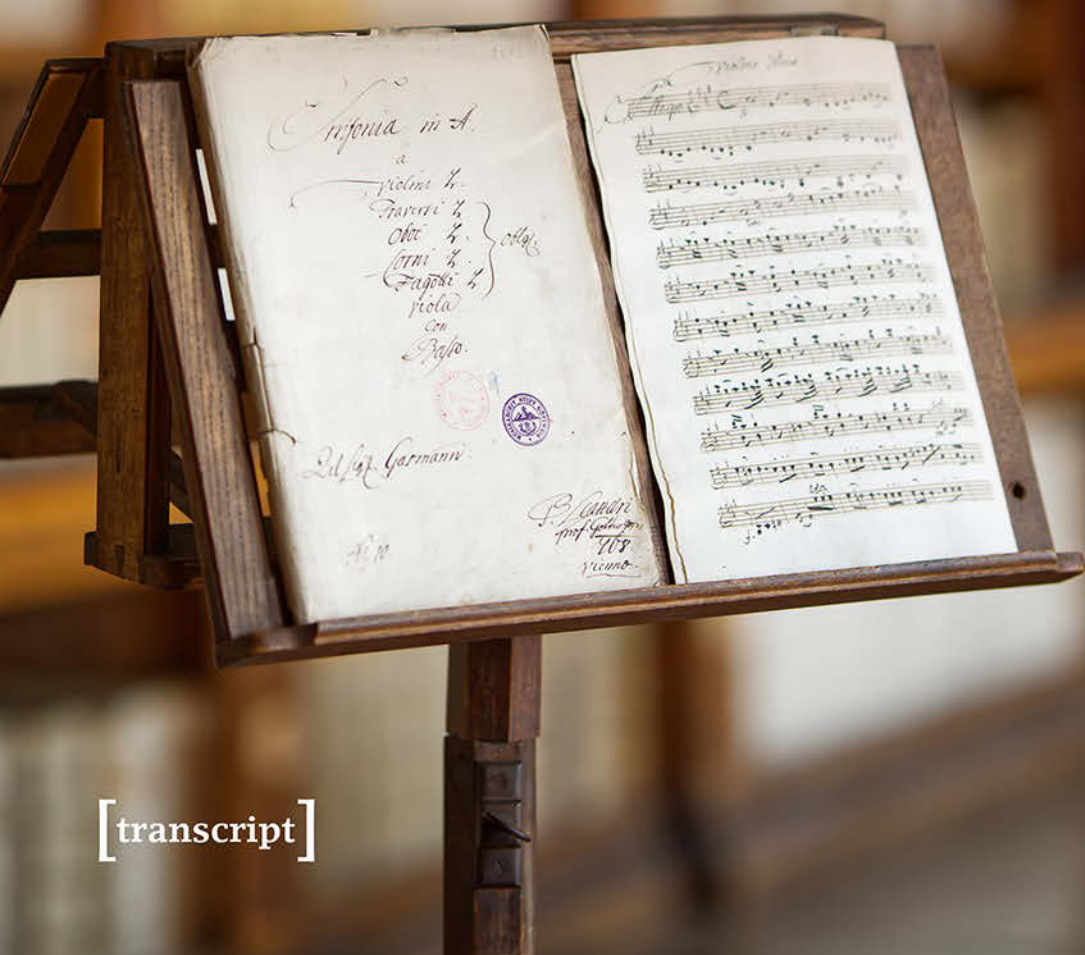 Sinfonia in A.
a
violini 2.
Traversi 2
Oboi 2.
Corni 2.
Fagotti 2
oblig.
viola
con
Basso.
Del Sigr. Gasmann.
No. 10
P. Leandri
708.
vienne.
Violino Primo
Allegro
[transcript]